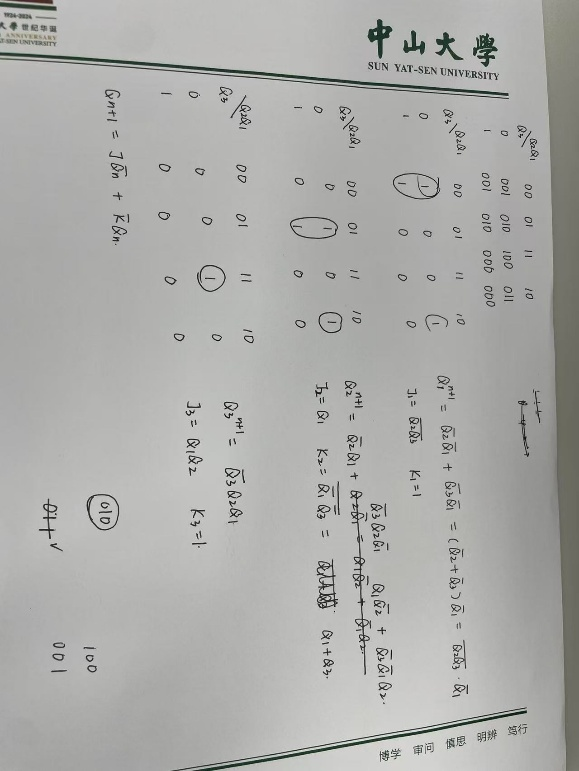 1924-2024
大學 世纪华诞
ANNIVERSARY
AT-SEN UNIVERSITY
中山大學
SUN YAT-SEN UNIVERSITY
Q3\Q2Q1 00 01 11 10
0 001 010 100 011
1 001 010 000 000
Q3\Q2Q1 00 01 11 10
0 1 0 0 1
1 1 0 0 0
Q1^{n+1} = Q̄2Q̄1 + Q̄3Q̄1 = (Q̄2+Q̄3)Q̄1 = \overline{Q2Q3}·Q̄1
J1 = \overline{Q2Q3} K1=1
Q3\Q2Q1 00 01 11 10
0 0 1 0 1
1 0 1 0 0
Q̄3Q2Q̄1 Q1Q̄2 + Q̄3Q̄1Q2.
Q2^{n+1} = Q̄2Q1 +
J2=Q1 K2 = \overline{Q̄1Q̄3} = Q1+Q3.
Q3\Q2Q1 00 01 11 10
0 0 0 1 0
1 0 0 0 0
Q3^{n+1} = Q̄3Q2Q1
J3 = Q1Q2 K3=1.
Qn+1 = JQ̄n + K̄Qn.
010
100
001
博学 审问 慎思 明辨 笃行